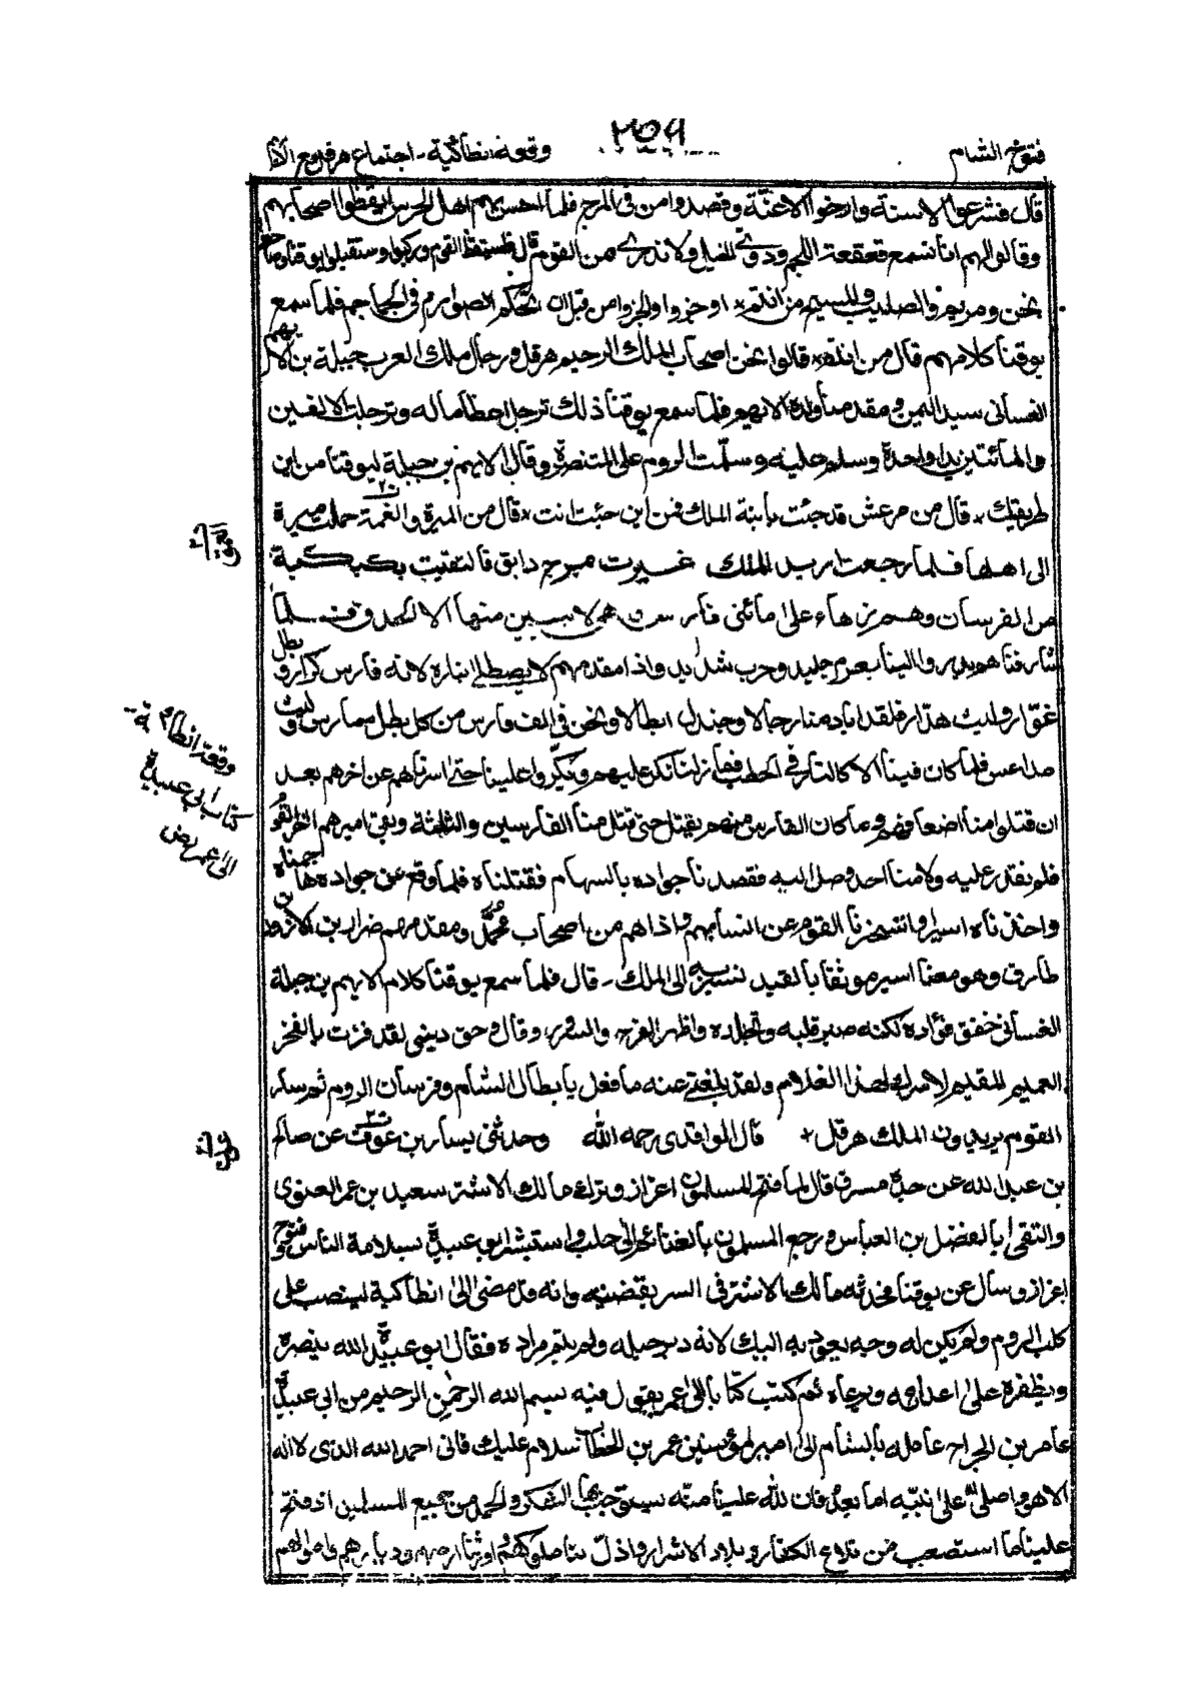 فتوح الشام
٢٥٩
وقعة انطاكية - اجتماع هرقل مع
قال فشرعوا الاسنة وارخوا الاعنّة وقصدوا من فى المرج فلما احس بهم اهل الحرس ايقظوا اصحابهم
وقالوا لهم انا نسمع قعقعة اللجم ودوىّ الخيل ولا ندرى من القوم قال فاستيقظ القوم وركبوا واستقبلوا يوقنا
نحن ومريم والصليب والمسيح من انتم اوجزوا من قبل ان نحكم الصوارم فى الجماجم فلما سمع
يوقنا كلامهم قال من انتم قالوا نحن اصحاب الملك الرحيم هرقل ورجال ملك العرب جبلة بن الايهم
الغسانى سيد اليمن ومقدمنا ولده الايهم فلما سمع يوقنا ذلك ترجل اعظاما له وترجلت الالفين
والمائتين يدا واحدة وسلم عليه وسلّمت الروم على المتنصرة وقال الايهم بن جبلة ليوقنا من اين
طريقك قال من مرعش قد جئت بابنة الملك فمن اين جئت انت قال من المبرة والغمة حملت ميرة
الى اهلها فلما رجعت اريد الملك عبرت مرج دابق فالتقيت بكبكبة
من الفرسان وهم زهاء على مائتى فارس لا يبين منها الا الحدق فلما
شارفنا هم بدروا الينا بعزم جليد وحرب شديد واذا مقدمهم لا يصطلى بناره لانه فارس كرار وبطل
مغوار وليث هدار فلقد اباد منا رجالا وجندل ابطالا ونحن فى الف فارس من كل بطل ممارس وليث
مداعس فلما كان فينا الا كالنار فى الحطب فما زلنا نكر عليهم ويكرّوا علينا حتى اسرناهم عن اخرهم بعد
ان قتلوا منا اضعافهم وما كان الفارس منهم يقتل حتى قتل منا الفارسين والثلثة وبقى اميرهم اخر القوم
فلم نقدر عليه ولا منا احد وصل اليه فقصدنا جواده بالسهام فقتلناه فلما وقع عن جواده هاجمناه
واخذناه اسيرا واستخبرنا القوم عن انسابهم واذا هم من اصحاب محمّد ومقدمهم ضرار بن الازور بن
طارق وهو معنا اسير موثقا بالقيد نسير به الى الملك - قال فلما سمع يوقنا كلام الايهم بن جبلة
الغسانى خفق فؤاده لكنه صبر قلبه وتجلده واظهر الفرح والسرور وقال وحق دينى لقد فزت بالفخر
العميم المقيم لاسرك هذا الغلام ولقد بلغنى عنه ما فعل بابطال الشام وفرسان الروم ثم سار
القوم يريدون الملك هرقل قال الواقدى رحمه الله وحدثنى يسار بن عوف عن صالح
بن عبد الله عن جدة مسرق قال لما فتح المسلمون اعزاز وترك مالك الاشتر سعيد بن عمر الغنوى
والتقى بالفضل بن العباس ورجع المسلمون بالغنائم الى حلب واستبشر ابو عبيدة بسلامة الناس وفتوح
اعزاز وسال عن يوقنا فحدثه مالك الاشتر فى السر بقضيته وانه قد مضى الى انطاكية لينصب على
كلب الروم ولم يكن له وجه يعود به اليك لانه دبر حيلة ولم يتم مراده فقال ابو عبيدة الله ينصره
ويظفره على اعدائه ودعاه ثم كتب كتابا الى عمر يقول فيه بسم الله الرحمٰن الرحيم من ابى عبيدة
عامر بن الجراح عامله بالشام الى امير المؤمنين عمر بن الخطاب سلام عليك فانى احمد الله الذى لا اله
الا هو واصلى على نبيّه اما بعد فان لله علينا منّه يستوجب بها الشكر والحمد من جميع المسلمين اذ فتح
علينا ما استصعب من قلاع الكفار وبلاد الاشرار واذلّ لنا ملوكهم واورثنا ارضهم وديارهم واموالهم
وقعة انطاكية
كتاب ابى عبيدة
الى عمر رض